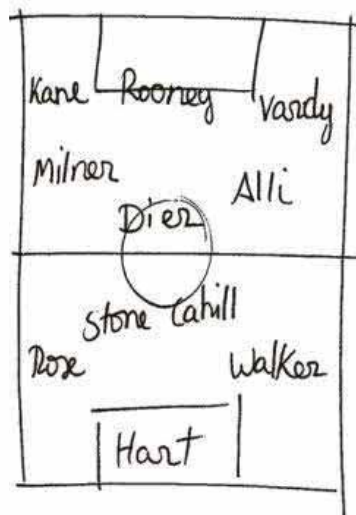 Kane Rooney Vardy
Milner Alli
Dier
Stone Cahill
Rose Walker
Hart